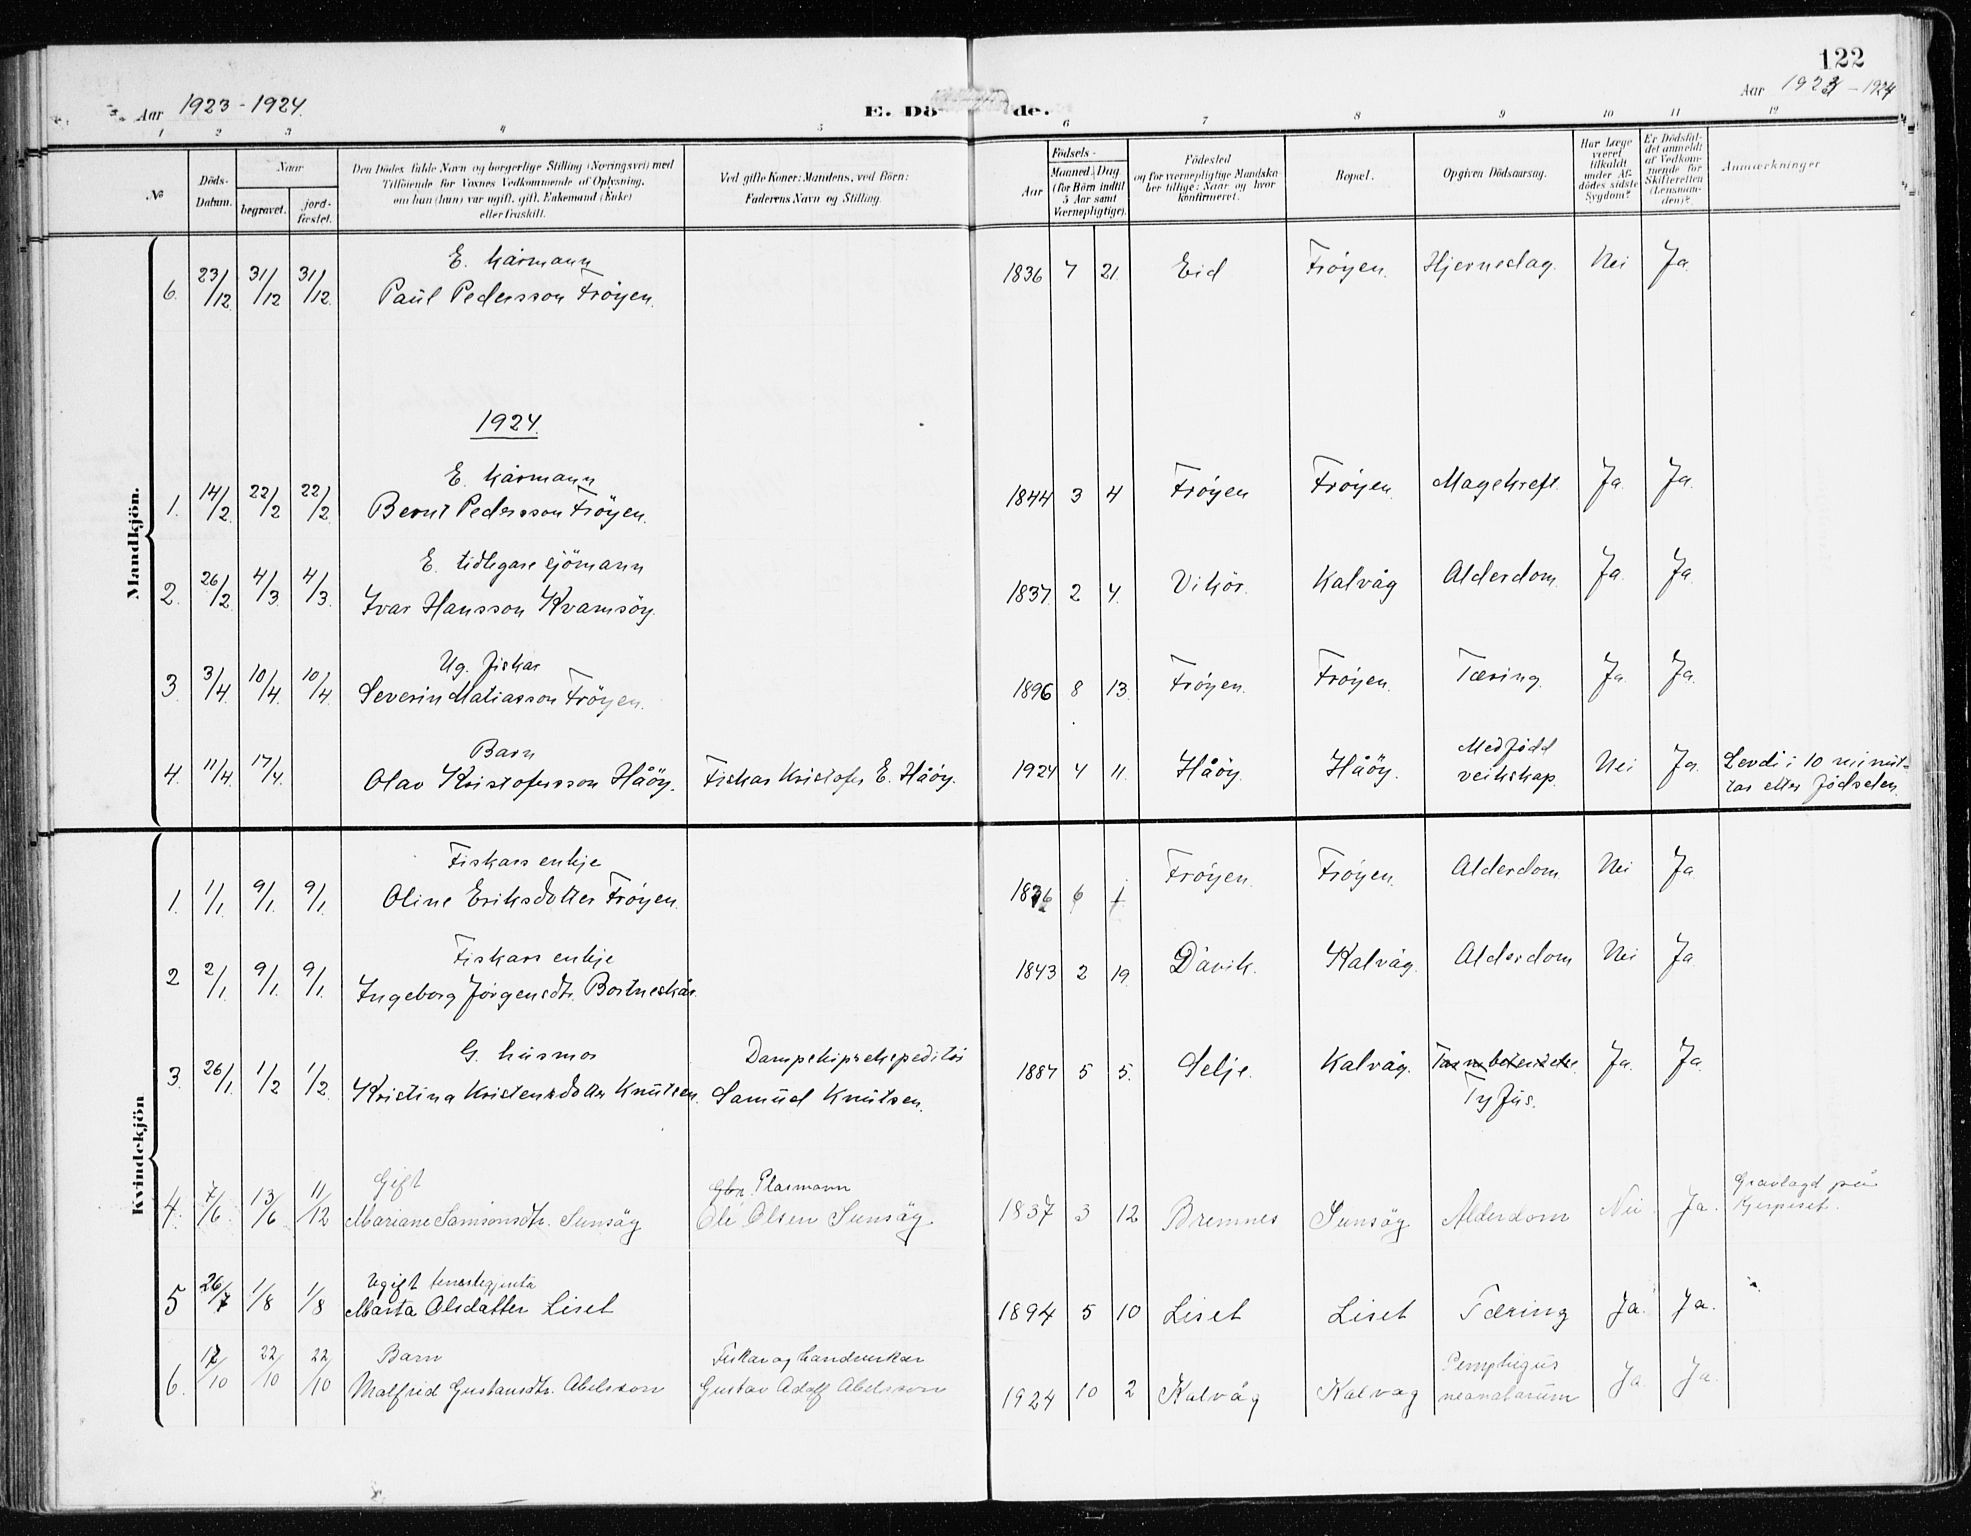 122
Aar 1923 - 1924.
E. Dö de.
Aar 1923 - 1924
1 2 3 4 5 6 7 8 9 10 11 12
№
Döds-
Datum.
Naar
begravet.
jord-
fæstet.
Den Dödes fulde Navn og borgerlige Stilling (Næringsvei) med
Tilföiende for Voxnes Vedkommende af Oplysning,
om han (hun) var ugift, gift, Enkemand (Enke)
eller fraskilt.
Ved gifte Koner: Mandens, ved Börn:
Faderens Navn og Stilling.
Födsels-
Aar
Maaned. Dag
(for Börn indtil
5 Aar samt
Værnepligtige).
Födested
og for værnepligtige Mandska-
ber tillige: Naar og hvor
konfirmeret.
Bopæl.
Opgiven Dödsaarsag.
Har Læge
været
tilkaldt
under Af-
dödes sidste
Sygdom?
Er Dödsfal-
det anmeldt
af Vedkom-
mende for
Skifteretten
(Lensman-
den)?
Anmærkninger
Mandkjön.
E. kårmann
6. 23/12 31/12 31/12. Paul Pedersson Fröyen. 1836 7 21. Eid Fröyen. Hjerneslag. Nei Ja.
1924.
E. kårmann
1. 14/2 22/2 22/2. Bernt Pedersson Fröyen. 1844 3 4 Fröyen Fröyen. Magekreft. Ja. Ja.
E. tidlegare sjömann
2. 26/2 4/3. 4/3. Ivar Hansson Kvamsöy. 1837. 2 4. Vikör. Kalvåg Alderdom. Ja. Ja.
Ug. fiskar
3 3/4 10/4. 10/4. Severin Matiasson Fröyen. 1896 8 13. Fröyen. Fröyen. Tæring. Ja. Ja.
Barn
4. 11/4. 17/4. Olav Kristofersson Håöy. Fiskar Kristofer E. Håöy. 1924 4 11. Håöy. Håöy. Medfödd
veikskap. Nei Ja. Levdi i 10 minut-
tar etter födselen.
Kvindekjön
Fiskars enkje
1. 1/1. 9/1. 9/1. Oline Eriksdotter Fröyen. 6 1. Fröyen. Fröyen. Alderdom. Nei Ja.
Fiskars enkje
2 2/1. 9/1. 9/1. Ingeborg Jörgensdtr. Bortneskår. 1843 2 19. Davik. Kalvåg. Alderdom Nei Ja
G. husmor Dampskipsekspeditör
3. 26/1. 1/2 1/2. Kristina Kristensdotter Knutsen. Samuel Knutsen. 1887 5 5. Selje. Kalvåg. Ja. Ja.
Tyfus.
Gift Plasmann
4. 7/6 13/6 11/12 Mariane Samsonsdtr. Sunsöy Ole Olsen Sunsöy 1837 3 12 Bremnes Sunsöy Alderdom Nei Ja. Gravlagd på
Kjerpeset.
Ugift tenestegjenta
5 26/7 1/8 1/8 Marta Olsdatter Liset 1894 5 10 Liset Liset Tæring Ja. Ja.
Barn Fiskar og handverkar
6. 17/10 22/10 22/10 Malfrid Gustavsdtr. Abelsson Gustav Adolf Abelsson 1924 10 2 Kalvåg Kalvag Pemphigus
neonatarum Ja. Ja.